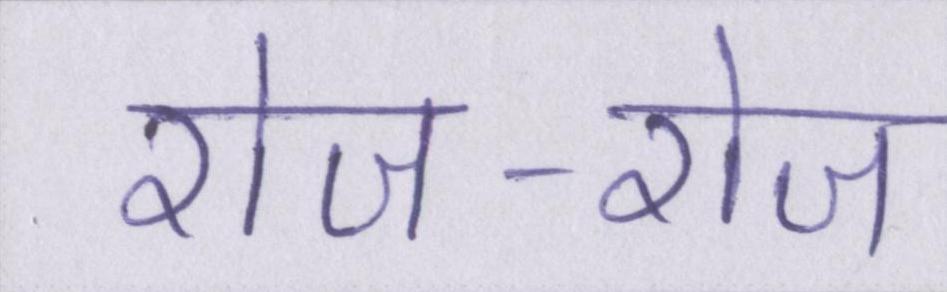 रोज-रोज